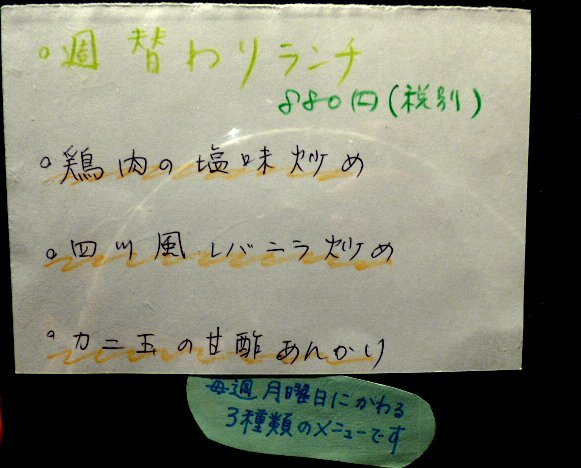 ○週替わりランチ
880円(税別)
○鶏肉の塩味炒め
○四川風レバニラ炒め
○カニ玉の甘酢あんかけ
毎週月曜日にかわる
3種類のメニューです